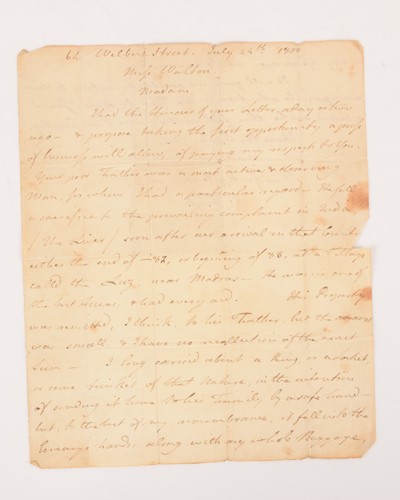 62 Welbeck Street. July 24th 1800
Miss Walton
Madam
I had the Honour of your Letter, a day or two
ago & propose taking the first opportunity a press
of business will allow, of paying my respects to You.
Your poor Father was a most active & deserving
Man, for whom I had a particular regard. He fell
a sacrifice to the prevailing complaint in India
(the Liver) soon after our arrival in that Country
either the end of -82, or beginning of 83, at a Village
called the Luz, near Madras - He was in one of
the best Houses, & had every aid. His Property
was remitted, I think, to his Father, but the amount
was small & I have no recollection of the exact
Sum - I long carried about a Ring, or a Locket
or some trinket of that Nature, in the intention
of sending it home to his Family by a safe hand -
but, to the best of my remembrance, it fell into the
Enemy's hands, along with my whole Baggage,